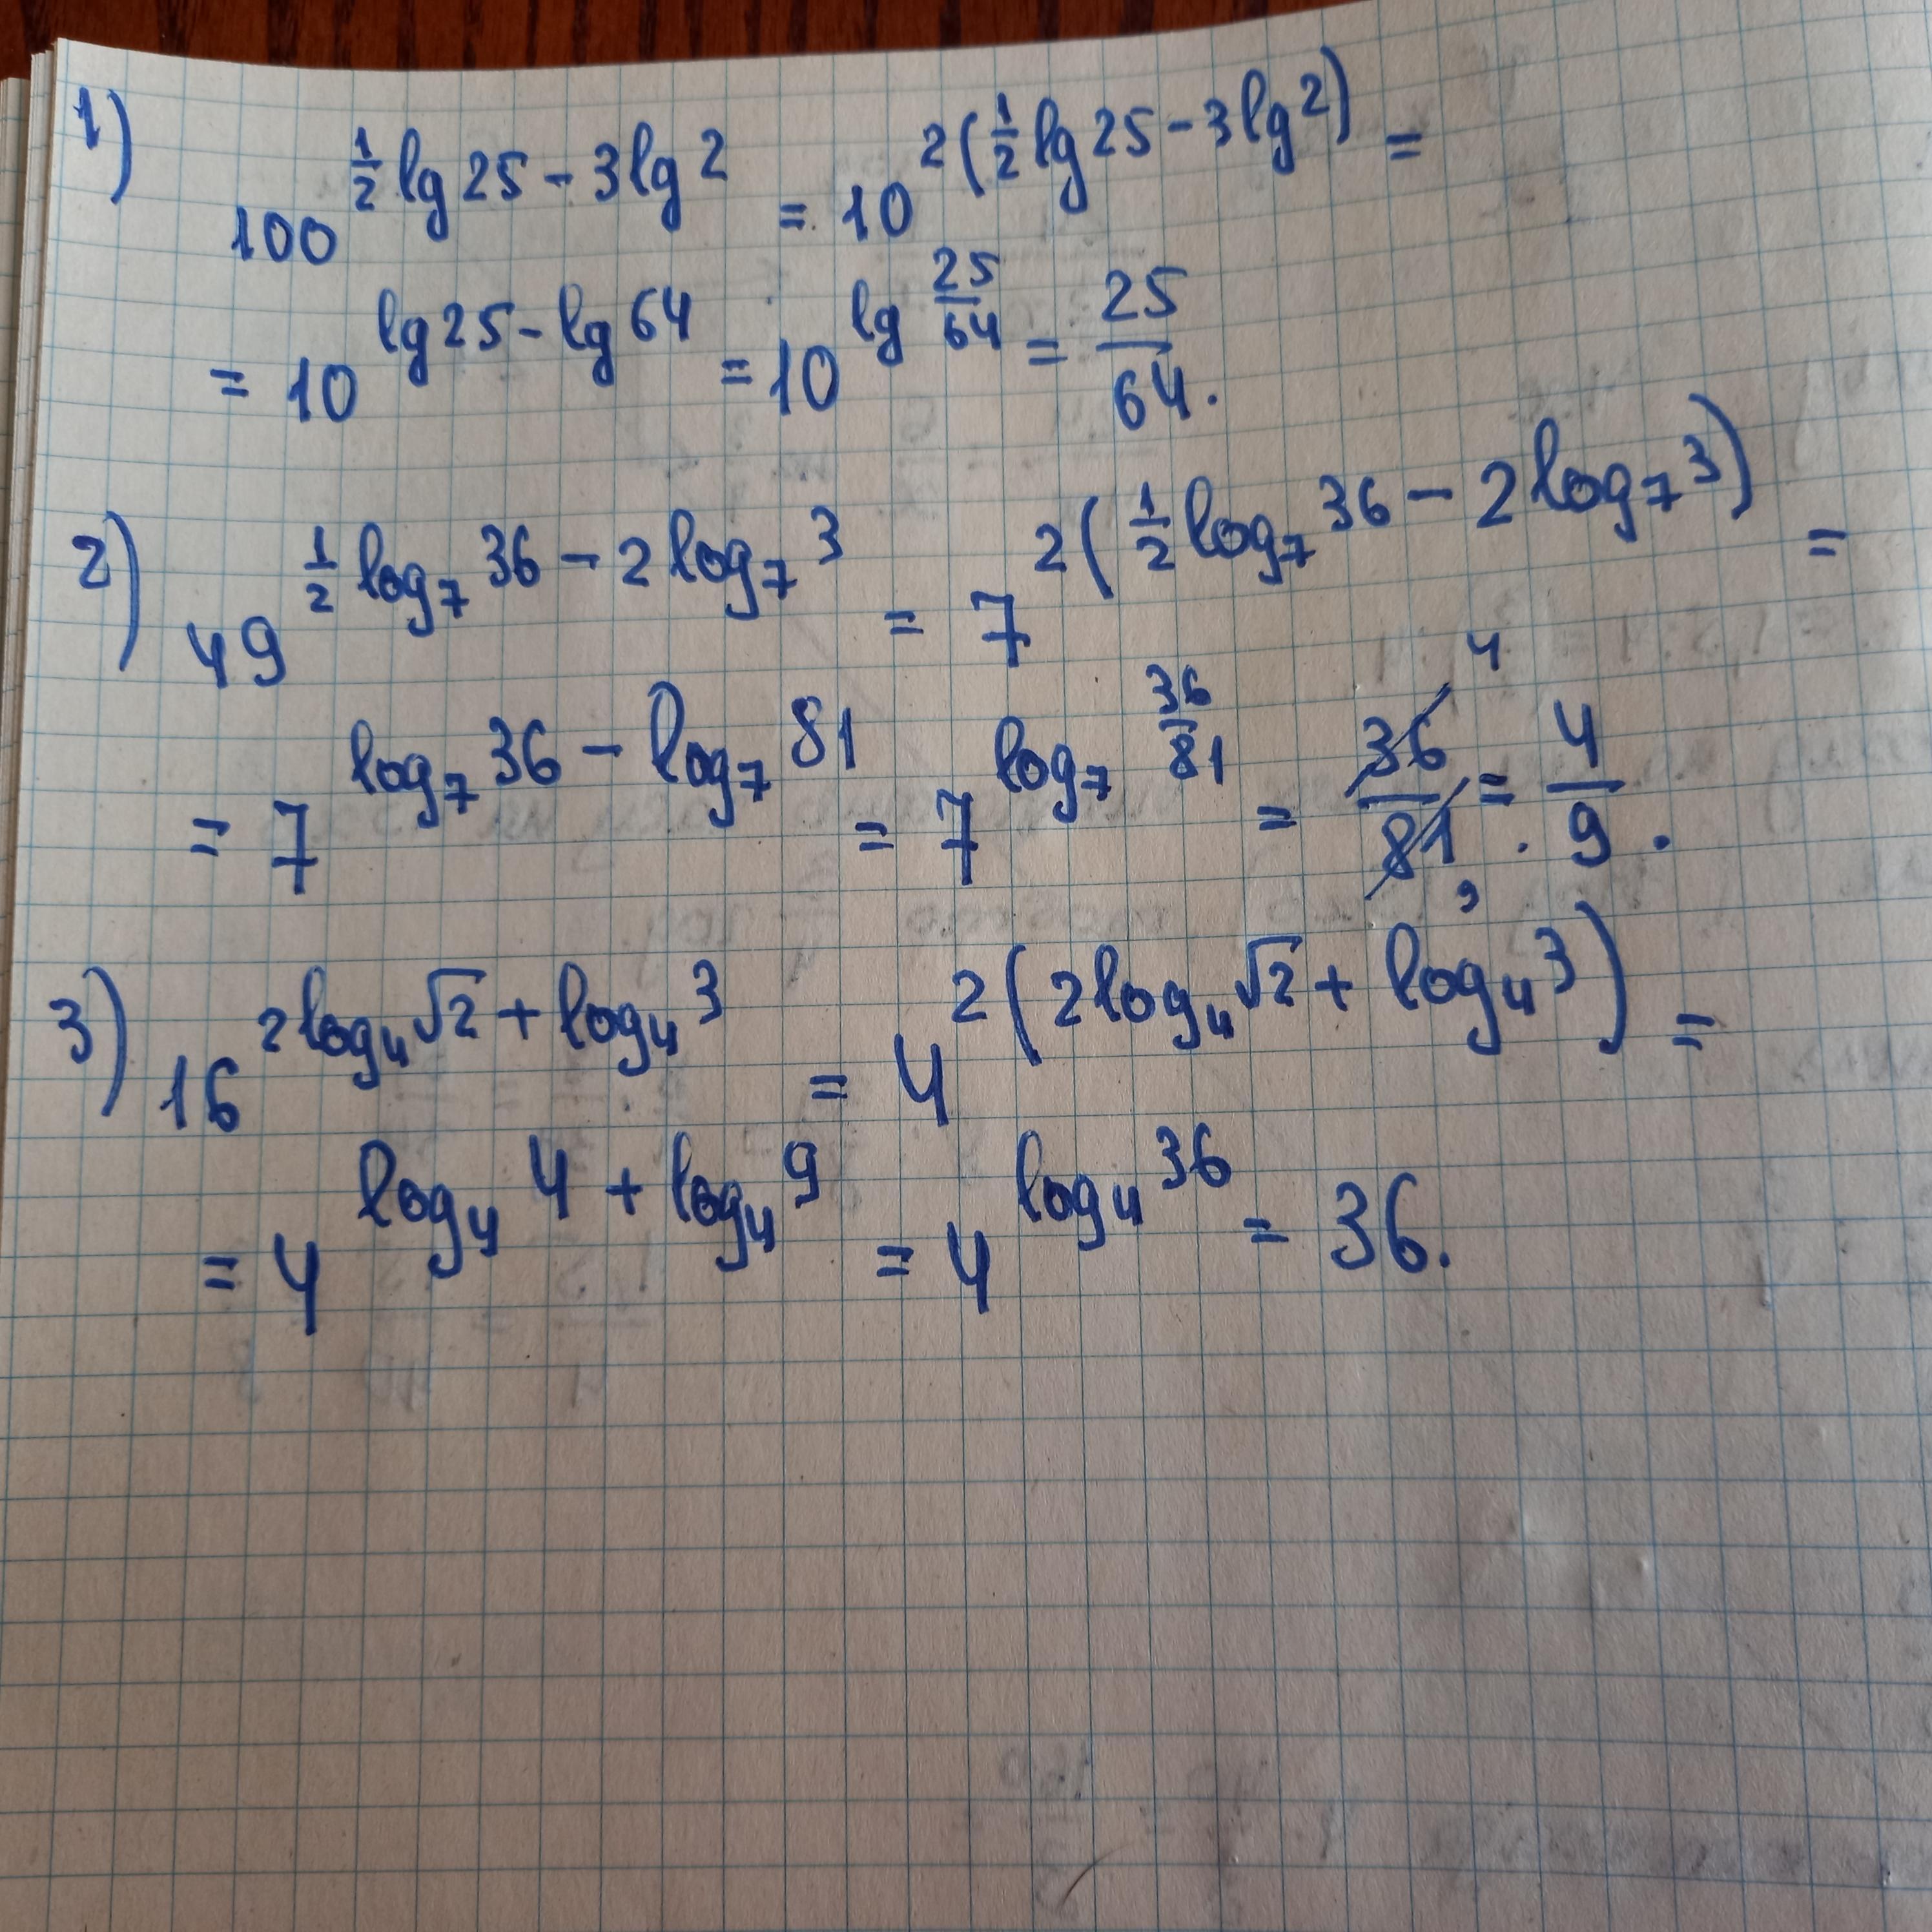 1) 100^(1/2 lg 25 - 3 lg 2) = 10^(2(1/2 lg 25 - 3 lg 2)) =
= 10^(lg 25 - lg 64) = 10^(lg 25/64) = 25/64.
2) 49^(1/2 log₇ 36 - 2 log₇ 3) = 7^(2(1/2 log₇ 36 - 2 log₇ 3)) =
= 7^(log₇ 36 - log₇ 81) = 7^(log₇ 36/81) = 36 4/81 9 = 4/9.
3) 16^(2 log₄ √2 + log₄ 3) = 4^(2(2 log₄ √2 + log₄ 3)) =
= 4^(log₄ 4 + log₄ 9) = 4^(log₄ 36) = 36.